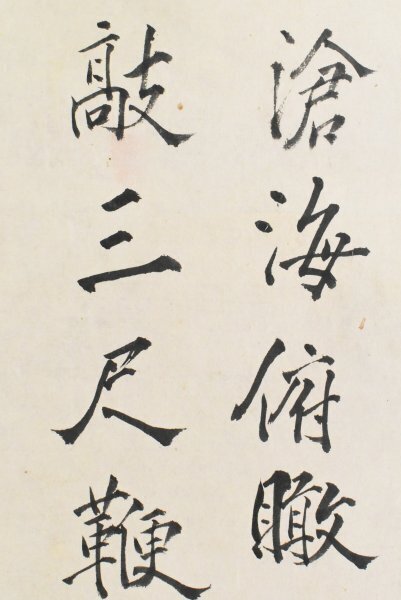 滄海俯瞰
敲三尺鞭